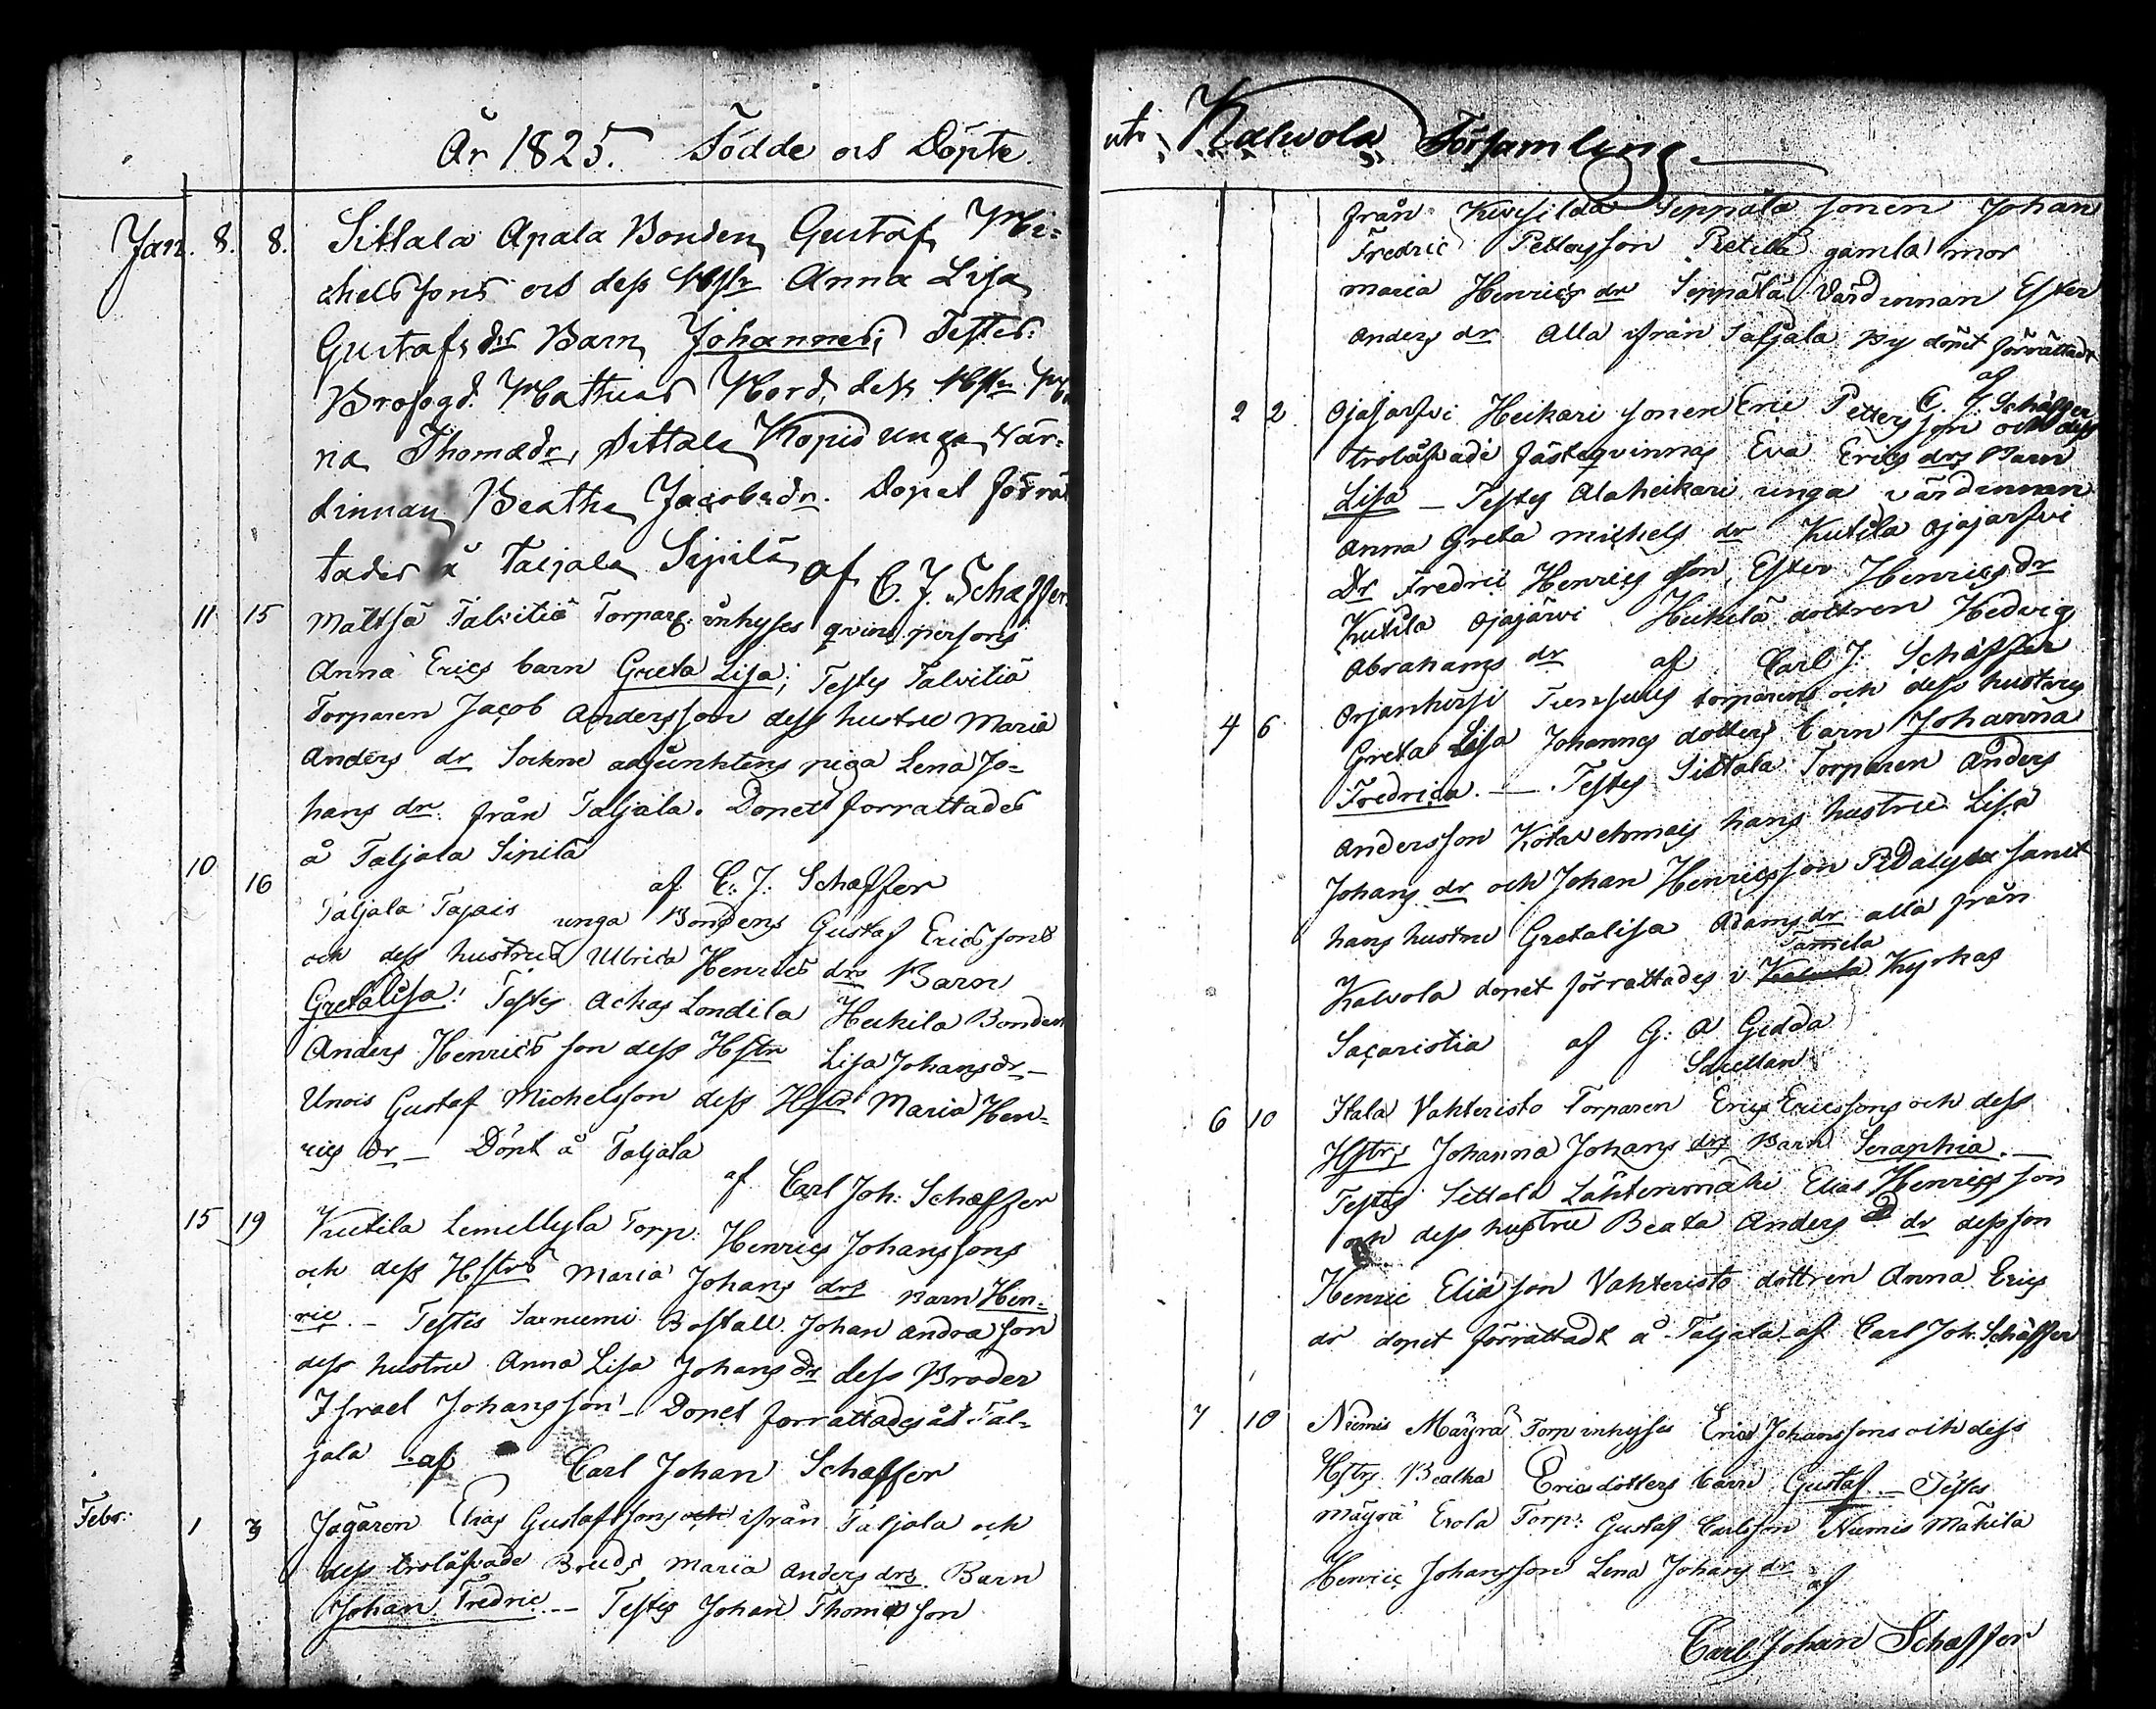 År 1825. Födde och Döpte
Jan. 8. 8. Sittala Apala Bonden Gustaf Mi=
chelssons och dess Hstr Anna Lisa
Gustafsdrs Barn, Johannes; Testes:
Brofogd. Mathias Nord, dess Hstr
na Thomædr, Sittala Kopis unga Vär=
dinnan Beatha Jacobsdr. Dopet förrät
tades å Taljala Sipilä af C. J. Schæffer
11 15 Maltsä Talvitiä Torpare inhyses qvins persons
Anna Erics barn Greta Lisa; Testes Talvitiä
Torparen Jacob Andersson dess hustru Maria
Anders dr Sockne adjunktens piga Lena Jo=
hans dr. från Taljala. Dopet forrattades
å Taljala Sipilä
af C. J. Schæffer
10 16 Taljala Tapais unga Bondens Gustaf Ericssons
och dess hustrus Ulrica Henrics drs Barn
Gretalisa: Testes Ackas Londila Heikila Bonden
Anders Henrics son dess Hstr Lisa Johansdr –
Unois Gustaf Michelsson dess Hstr Maria Hen=
rics dr – Döpt å Taljala
af Carl Joh: Schæffer
15 19 Kutila Lemellyla Torp: Henrics Johanssons
och dess Hstrs Maria Johans drs Barn Hen=
ric. – Testis Sarniemi Boställ. Johan Andra son
dess hustru Anna Lisa Johans dr dess Broder
Israel Johansson – Dopet forrattades åt Tal=
jala af Carl Johan Schæffer
Febr: 1 3 Jägaren Elias Gustafssons och ifrån Taljala och
dess trolåfvade Bruds Maria Anders drs. Barn
Johan Fredric. – Testes Johan Thomasson
uti Kalvola Församling.
från Kurjsilda Seppälä sonen Johan
Fredric Pettersson Pietilä gamla mor
maria Henrics dr Seppälä Värdinnan Ester
Anders dr Alla ifrån Taljala By döpet förrättadt
af
C. J. Schæffer
2 2 Ojajärfvi Heikari sonen Eric Petters son och dess
trolåfvade fästeqvinnas Eva Erics drs Barn
Lisa – Testes Alaheikari unga värdinnan
Anna Greta michels dr Kutila Ojajarfvi
Dr Fredric Henrics son, Ester Henrics dr
Kutila Ojajärvi Heikilä dottren Hedvig
Abrahams dr af Carl J: Schäffer
4 6 Orjanhirsi torparens och dess hustrus
Greta Lisa Johannes dotters barn Johanna
Fredrica. – Testes Sittala Torparen Anders
Andersson hans hustru Lisa
Johans dr och Johan Henricsson samt
hans hustru Gretalisa Adams dr alla från
Tamela
Kalvola dopet förrattades i Kalvola Kyrkas
Sacaristia af G: A Gedda
6 10 Itala Vahteristo Torparen Erics Ericssons och dess
Hstrs Johanna Johans drs Barn Seraphia. –
Testes Sittala Lähtenmäki Elias Henricsson
och dess hustru Beata Anders dr dess son
Henric Elia son Vahteristo dottren Anna Erics
dr dopet förrattadt å Taljala af Carl Joh: Schäffer
7 10 Niemis Mäyrä Torp inhyses Erics Johanssons och dess
Hstrs Beatha Erics dotters barn Gustaf. – Testes
Mäyrä Erola Torp: Gustaf Carlsson Niemis Mäkila
Henric Johansson Lena Johans dr
af
Carl Johan Schæffer